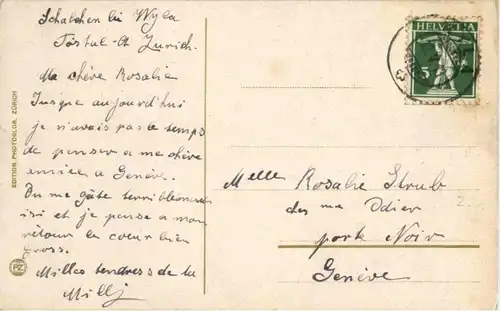 Schalchen bei Wyla
Tösstal. Ct Zurich.
Ma chère Rosalie
Jusque aujourd'hui
je n'avais pas le temps
de penser a me chère
amiee a Genève.
On me gâte terriblement
isi et je pense a mon
retour le coeur bien
gross.
Milles tendress de ta
Milly
EDITION PHOTOGLOB, ZÜRICH
PZ
HELVETIA
5
Melle Rosalie Strub
des ma Odier
porte Noir
Genève
2.